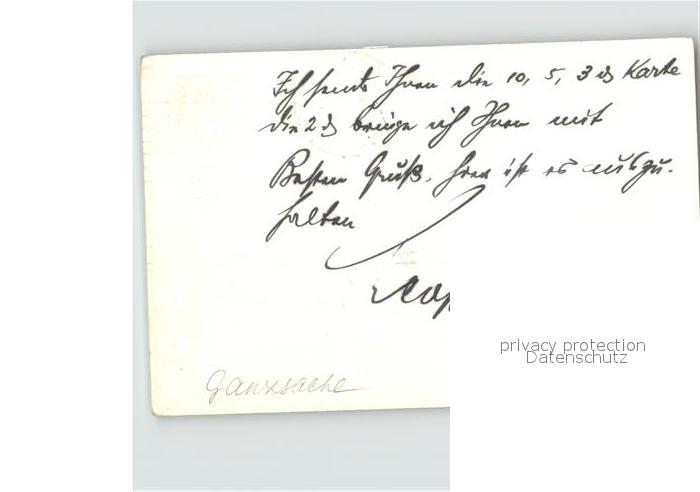 Ich sende Ihnen die 10, 5, 3 ₰ Karte
die 2 ₰ bringe ich Ihnen mit
Besten Gruß. hier ist es auszu-
halten
privacy protection
Datenschutz
Ganzsache